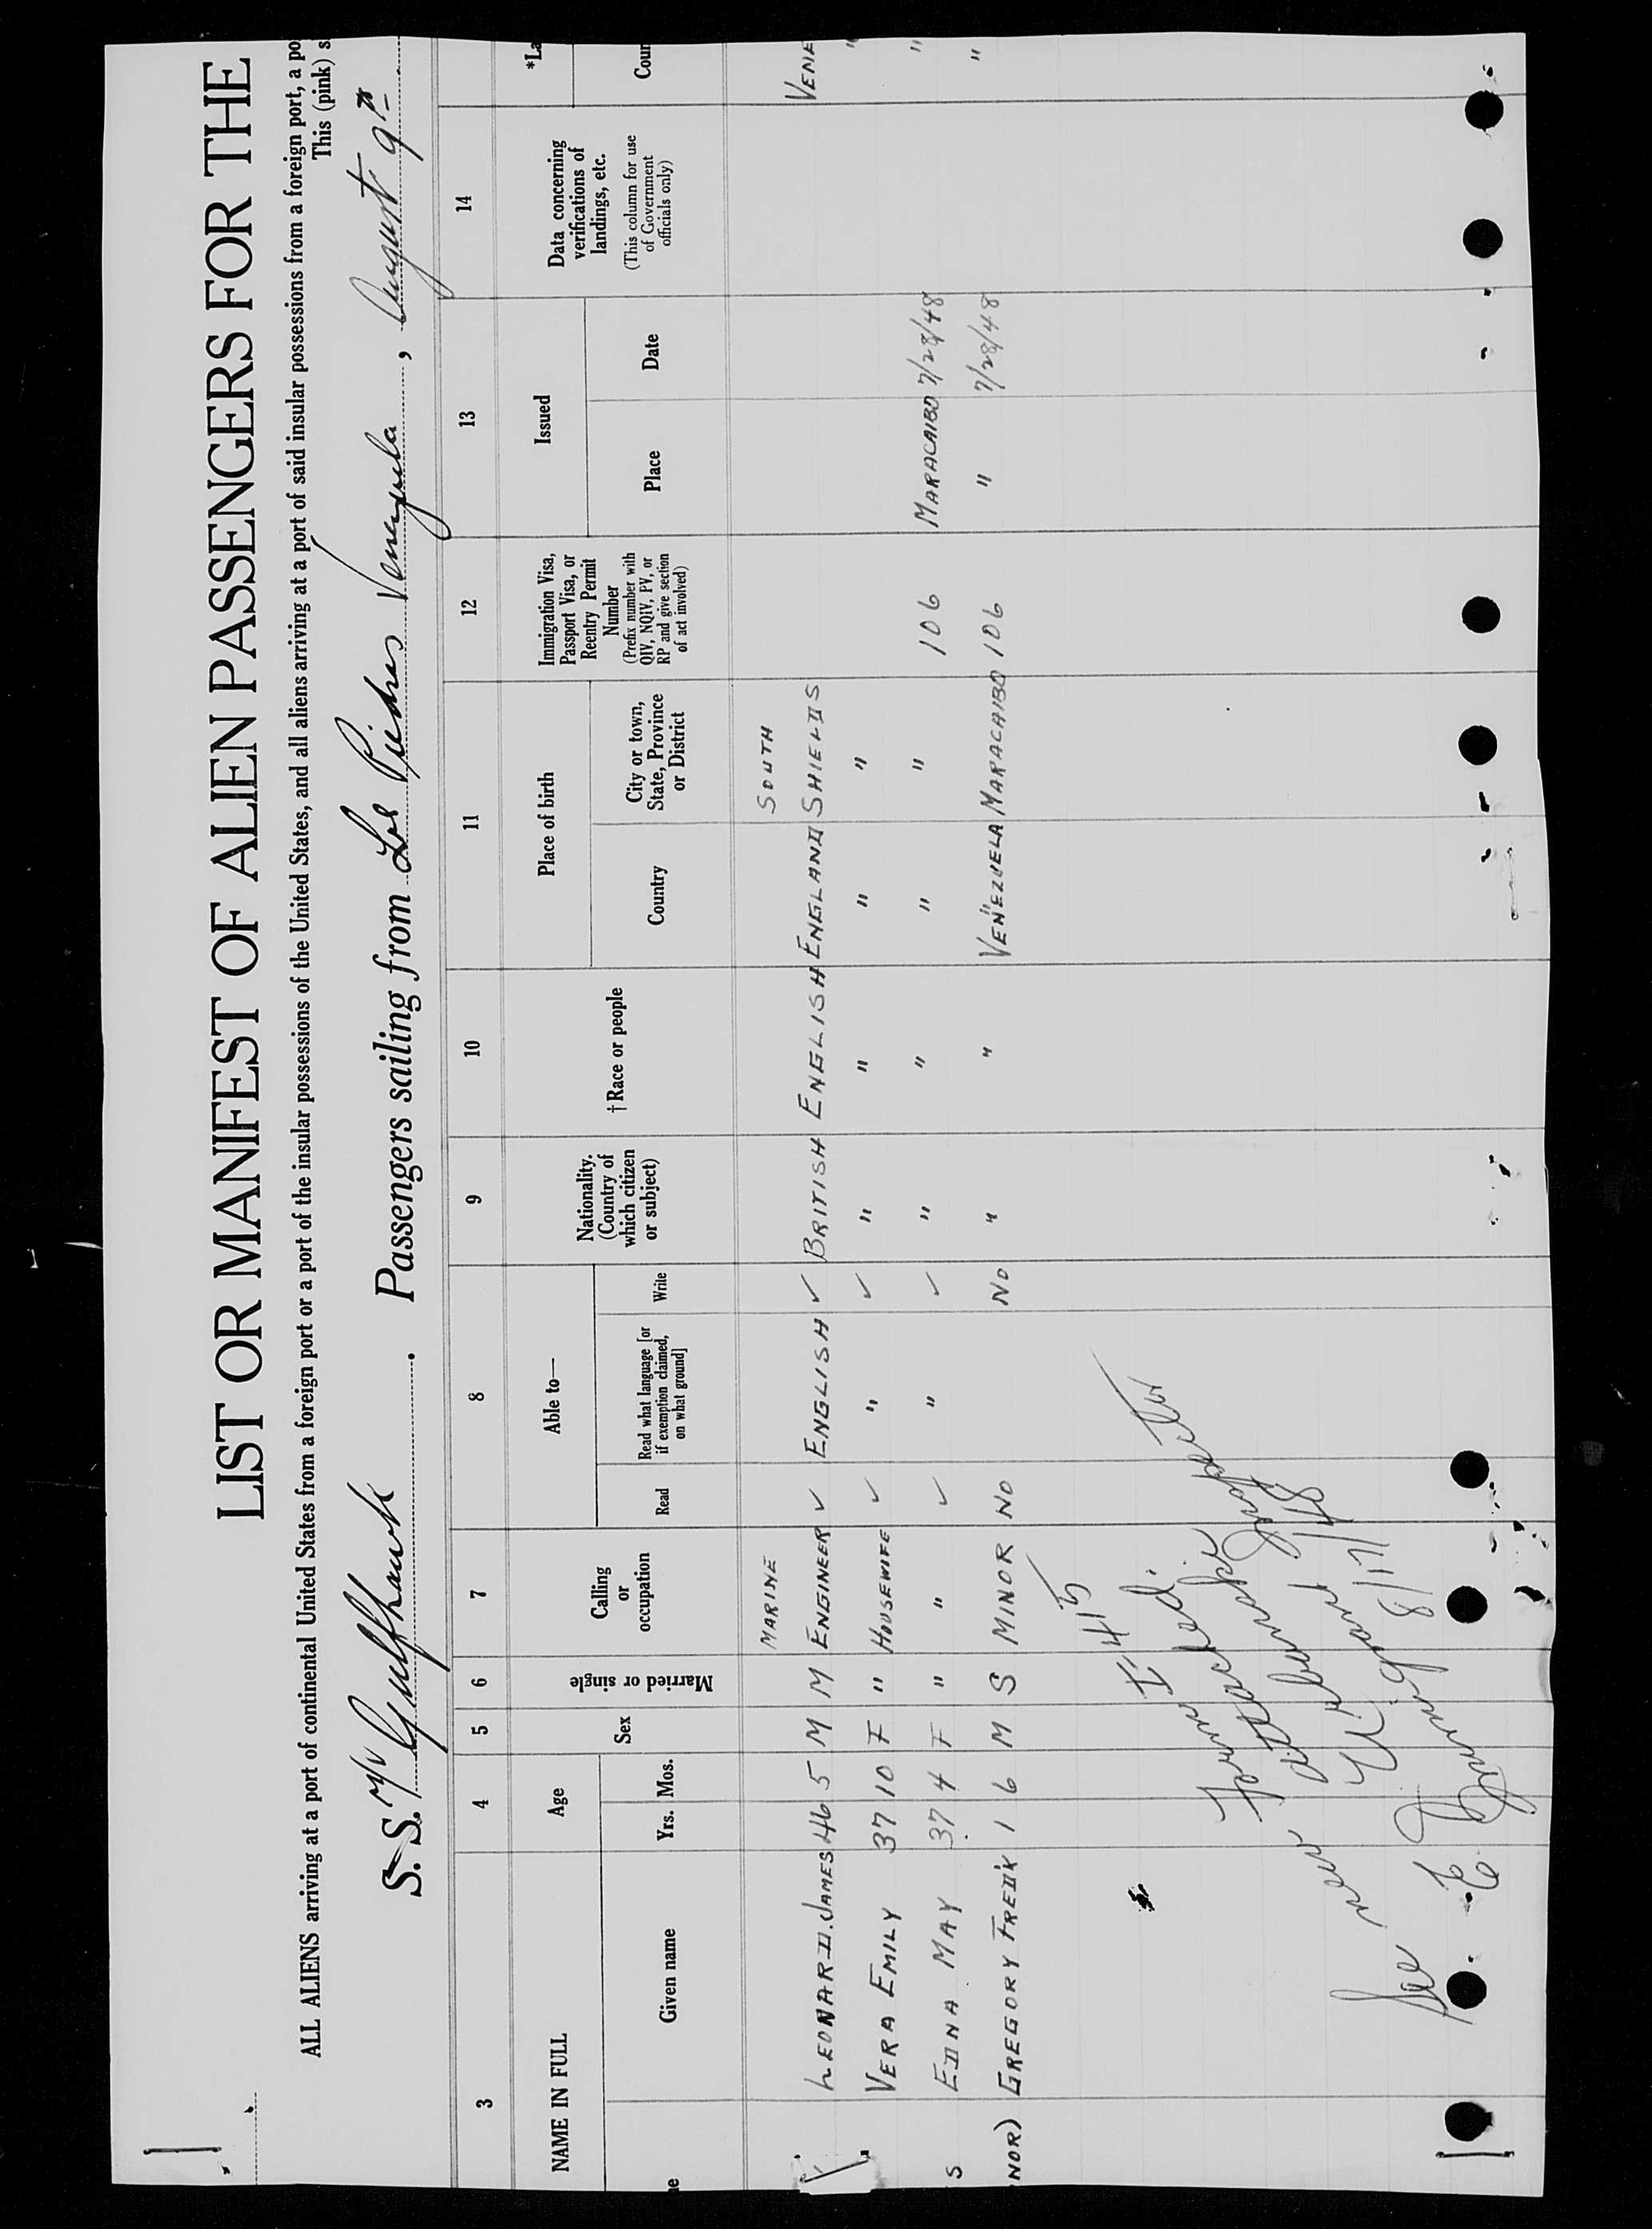 LIST OR MANIFEST OF ALIEN PASSENGERS FOR THE
ALL ALIENS arriving at a port of continental United States from a foreign port or a port of the insular possessions of the United States, and all aliens arriving at a port of said insular possessions from a foreign port, a po
This (pink) s
S. S. M/V Gulfhawk . Passengers sailing from Las Piedras Venezuela , August 9th
3 4 5 6 7 8 9 10 11 12 13 14
NAME IN FULL
Given name
Age
Yrs. Mos.
Sex
Married or single
Calling
or
occupation
Able to—
Read
Read what language [or
if exemption claimed,
on what ground]
Write
Nationality.
(Country of
which citizen
or subject)
†Race or people
Place of birth
Country
City or town,
State, Province
or District
Immigration Visa,
Passport Visa, or
Reentry Permit
Number
(Prefix number with
QIV, NQIV, PV, or
RP and give section
of act involved)
Issued
Place
Date
Data concerning
verifications of
landings, etc.
(This column for use
of Government
officials only)
*La
Coun
MARINE SOUTH
LEONARD. JAMES 46 5 M M ENGINEER ✓ ENGLISH ✓ BRITISH ENGLISH ENGLAND SHIELDS VENE
VERA EMILY 37 10 F " HOUSEWIFE ✓ " ✓ " " " " "
S EDNA MAY 37 4 F " " ✓ " ✓ " " " " 106 MARACAIBO 7/28/48 "
NOR) GREGORY FRED'K 1 6 M S MINOR NO NO " " VENEZUELA MARACAIBO 106 " 7/28/48 "
Form I-415
attached.
See new
8/17/48